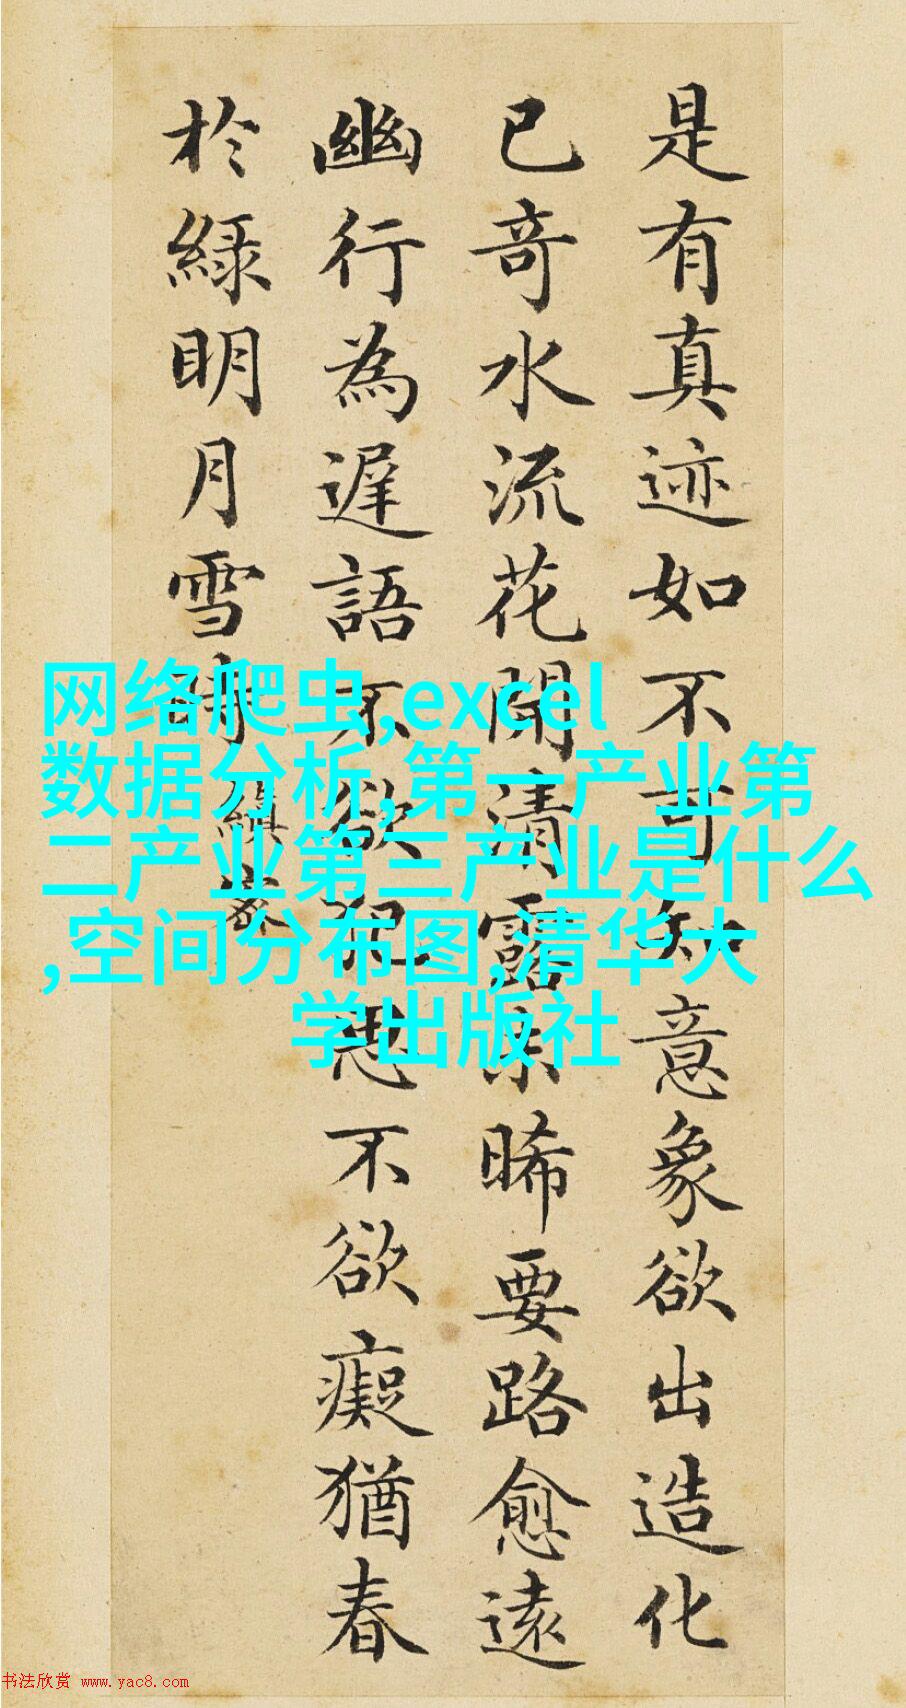 是有真迹如不可知意象欲出造化
已奇水流花開清露未晞要路愈遠
幽行為遲語不欲犯思不欲癡猶春
於綠明月雪時
縝密
网络爬虫,excel
数据分析,第一产业第
二产业第三产业是什么
,空间分布图,清华大
学出版社
书法欣赏 www.yac8.com